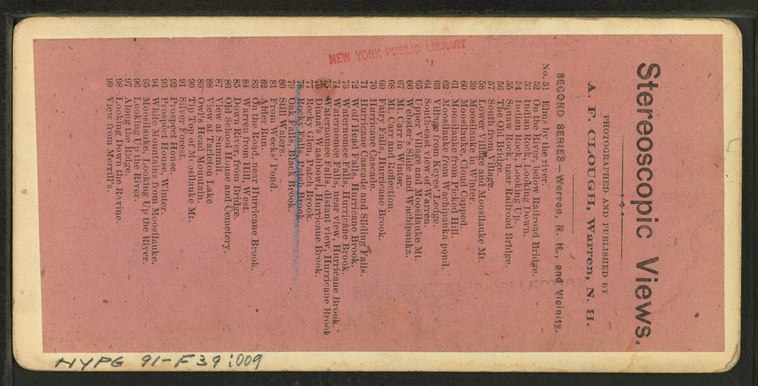 Stereoscopic Views.
PHOTOGRAPHED AND PUBLISHED BY
A. F. CLOUGH, Warren, N. H.
SECOND SERIES—Warren, N. H., and Vicinity.
No. 51 Elms by the river.
52 On the River, below Railroad Bridge.
53 Indian Rock, Looking Down.
54 Indian Rock, Looking Up.
55 School Rock, near Railroad Bridge.
56 The Old Bridge.
57 South Village.
58 Lower Village and Moosilauke Mt.
59 Moosilauke in Winter.
60 Moosilauke Cloud Capped.
61 Moosilauke from Picked Hill.
62 Moosilauke from Wachipauka pond.
63 Village from Keyes' Ledge.
64 South-east view of Warren.
65 Upper Village and Moosilauke Mt.
66 Webster's Slide and Wachipauka.
67 Mt. Carr in Winter.
68 Mt. Carr and Reflection.
69 Fairy Falls, Hurricane Brook.
70 Hurricane Cascade.
71 Hurricane Cascade and Sliding Falls.
72 Wolf Rock Falls, Hurricane Brook.
73 Waternomee Falls, Hurricane Brook.
74 Waternomee Falls, near view, Hurricane Brook
75 Waternomee Falls, distant view, Hurricane Brook
76 Diana's Washbowl, Hurricane Brook.
77 Rocky Falls, Patch Brook.
78 Rocky Falls, Patch Brook.
79 Oak Falls, Black Brook.
80 Still Waters.
81 From Weeks' Pond.
82 After Rain.
83 On the Road, near Hurricane Brook.
84 Warren from Hill, West.
85 Down River, from Bridge.
86 Old School House and Cemetery.
87 View at Summit.
88 View at Tarleton Lake
89 Owl's Head Mountain.
90 Tip Top of Moosilauke Mt.
91 Silver Forest.
92 Prospect House.
93 Prospect House, Winter.
94 White Mountains from Moosilauke.
95 Moosilauke, Looking Up the River.
96 Looking Up the River.
97 Along the Ridge.
98 Looking Down the Ravine.
99 View from Merrill's.
NEW YORK PUBLIC LIBRARY
NYPG 91-F39:009